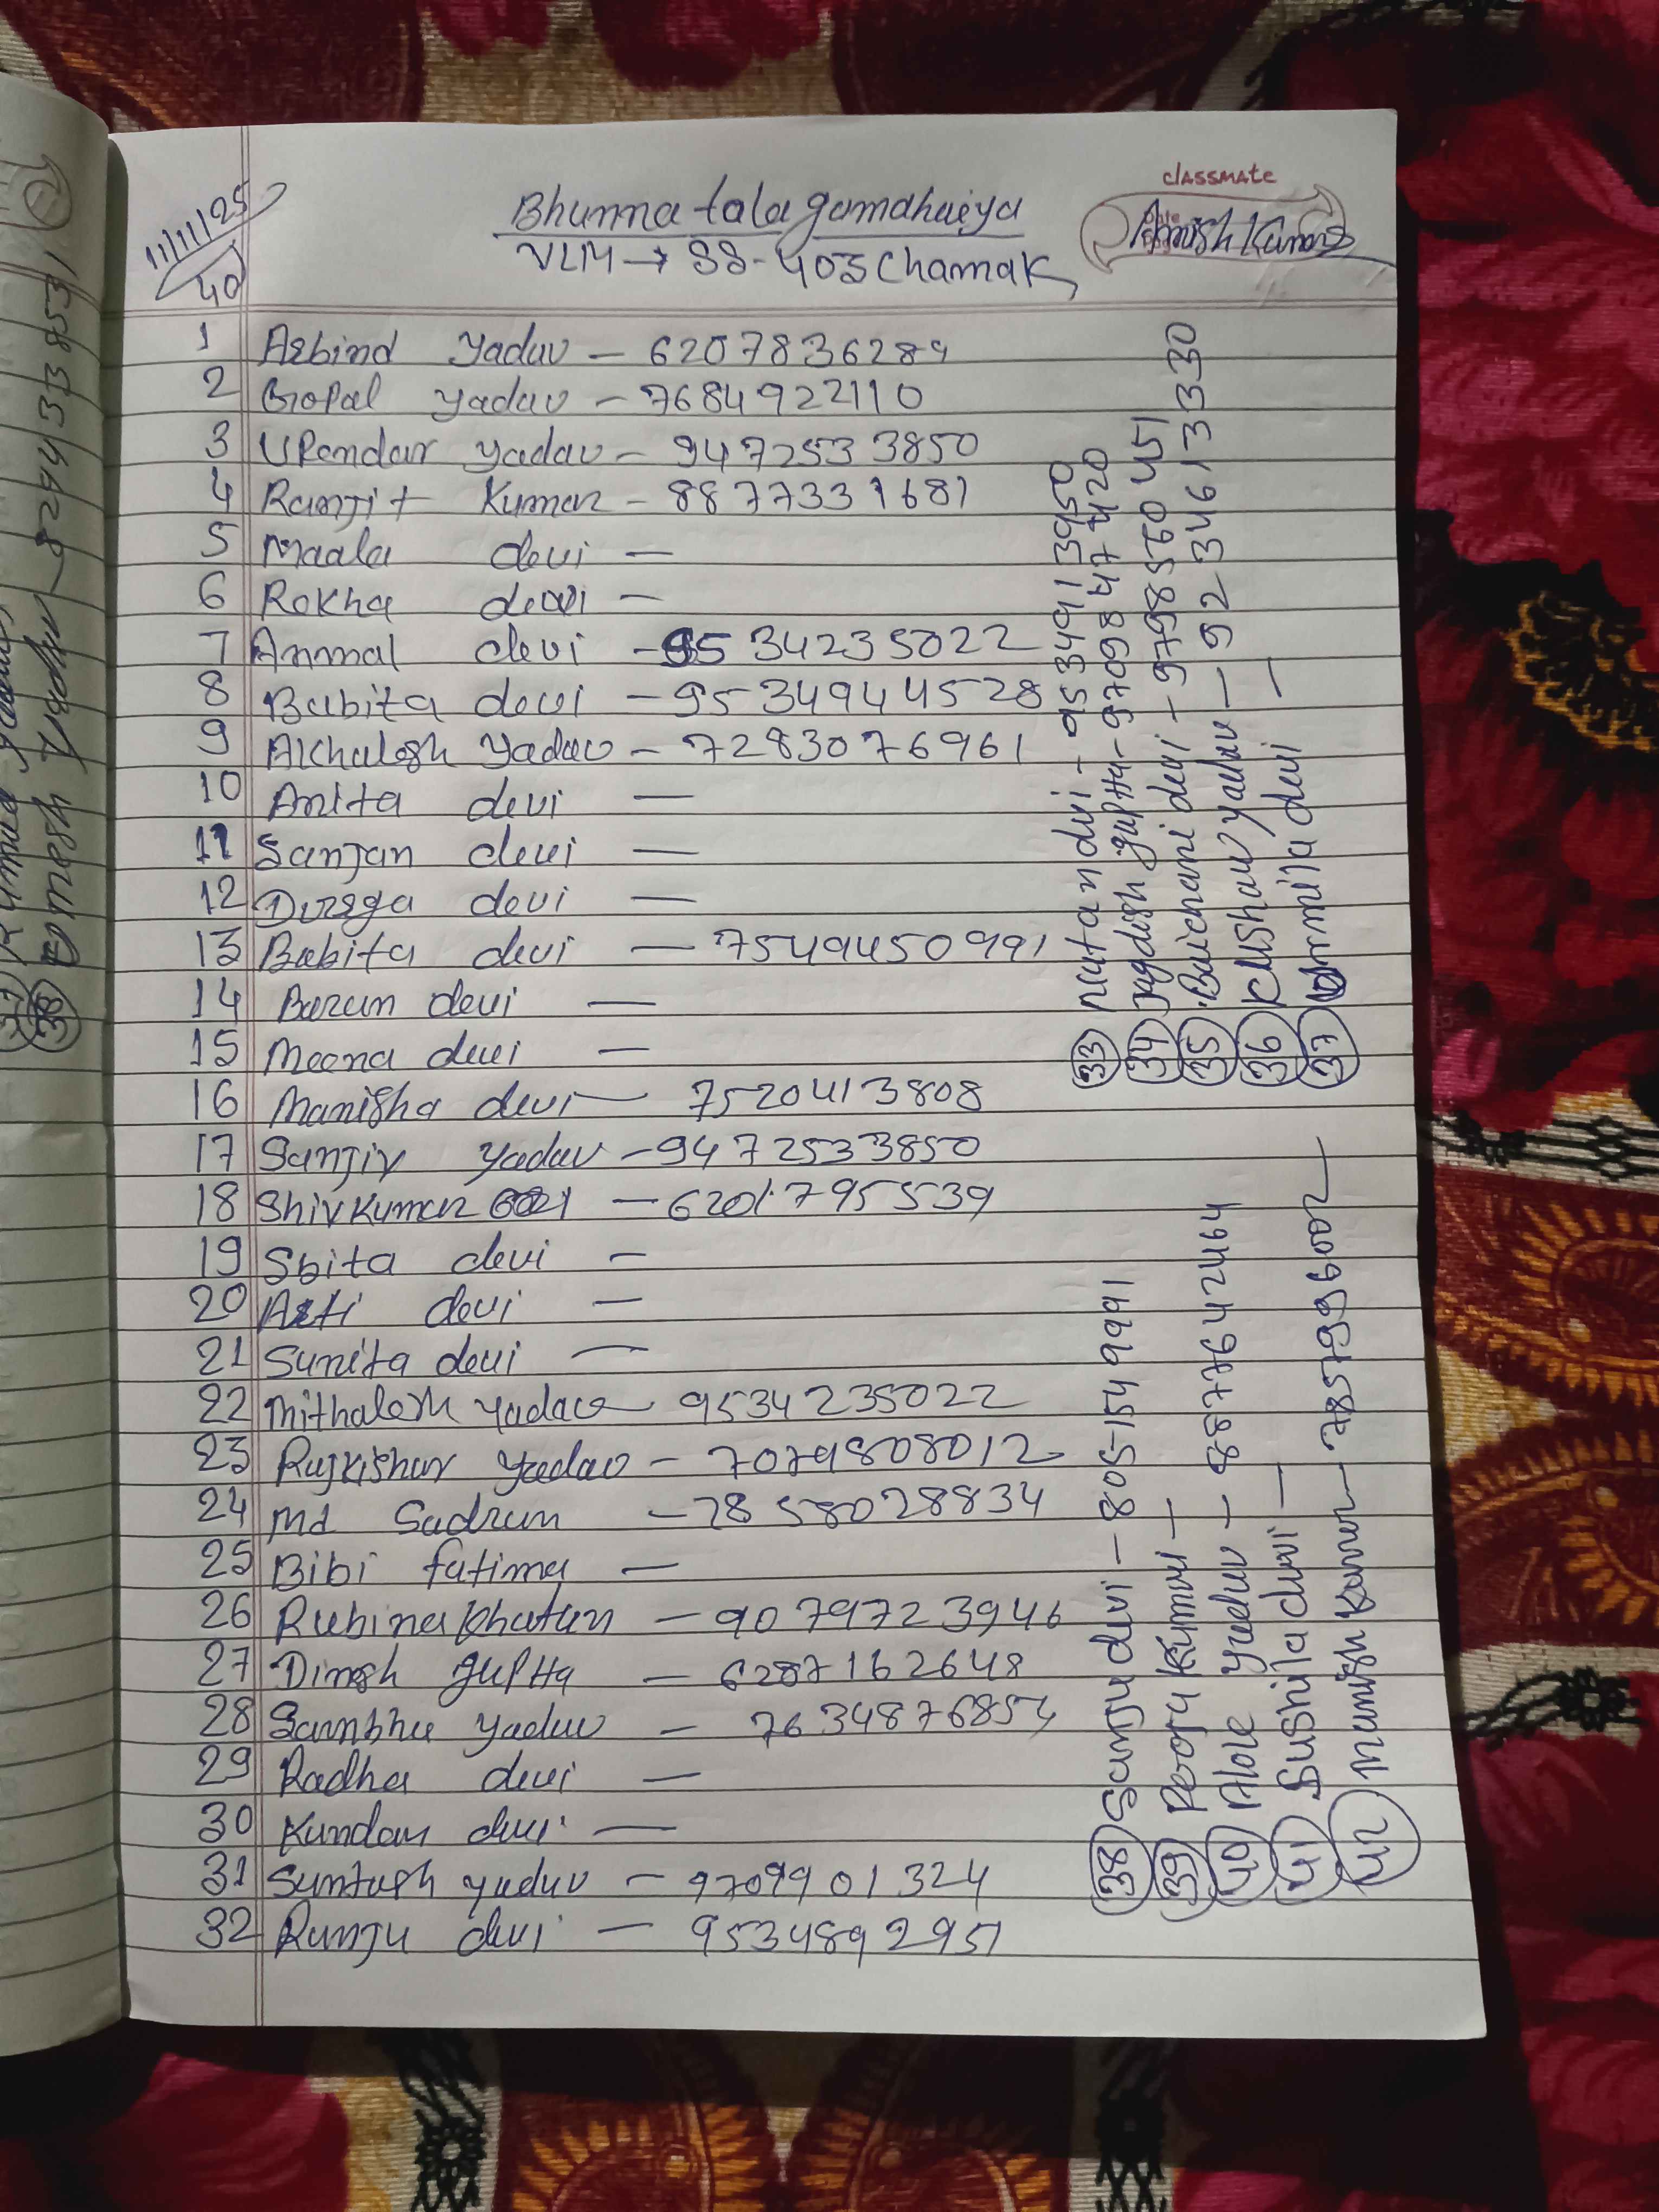 11/11/25
40
Bhunna tola gamahaiya
VLM → SS-403 Chamak
classmate
Date
Page
Amish Kumar
1 Arbind Yadav — 6207836284
2 Gopal Yadav — 7684922110
3 Upendar Yadav — 9472533850
4 Ranjit Kumar — 8877331681
5 Maala devi —
6 Rekha devi —
7 Anmal devi — 9534235022
8 Babita devi — 9534944528
9 Akhalesh Yadav — 7283076961
10 Anita devi —
11 Sanjan devi —
12 Durga devi —
13 Babita devi — 7549450991
14 Barun devi —
15 Meena devi —
16 Manisha devi — 7520413808
17 Sanjiv Yadav — 9472533850
18 Shiv Kumar — 6201795539
19 Sbita devi —
20 Arti devi —
21 Sunita devi —
22 Mithalesh Yadav — 9534235022
23 Rajkishor Yadav — 7079808012
24 Md Sadrun — 7858028834
25 Bibi fatima —
26 Rubina khatun — 9079723946
27 Dinesh guptta — 6287162648
28 Sambhu Yadav — 7634876854
29 Radha devi —
30 Kundan devi —
31 Suntosh yaduv — 9709901324
32 Runju devi — 9534892951
33 nutan devi — 9534913950
34 Jagdish guptta — 9709847420
35 Baichani devi — 9798560451
36 Kushaw yadav — 9234613330
37 Urmila devi —
38 Sanju devi — 805-1549991
39 Pooja Kumari —
40 Alok Yaduv — 8877642464
41 Sushila devi —
42 manish Kumar — 7857996002
38 Umesh Yadav — 8294333853